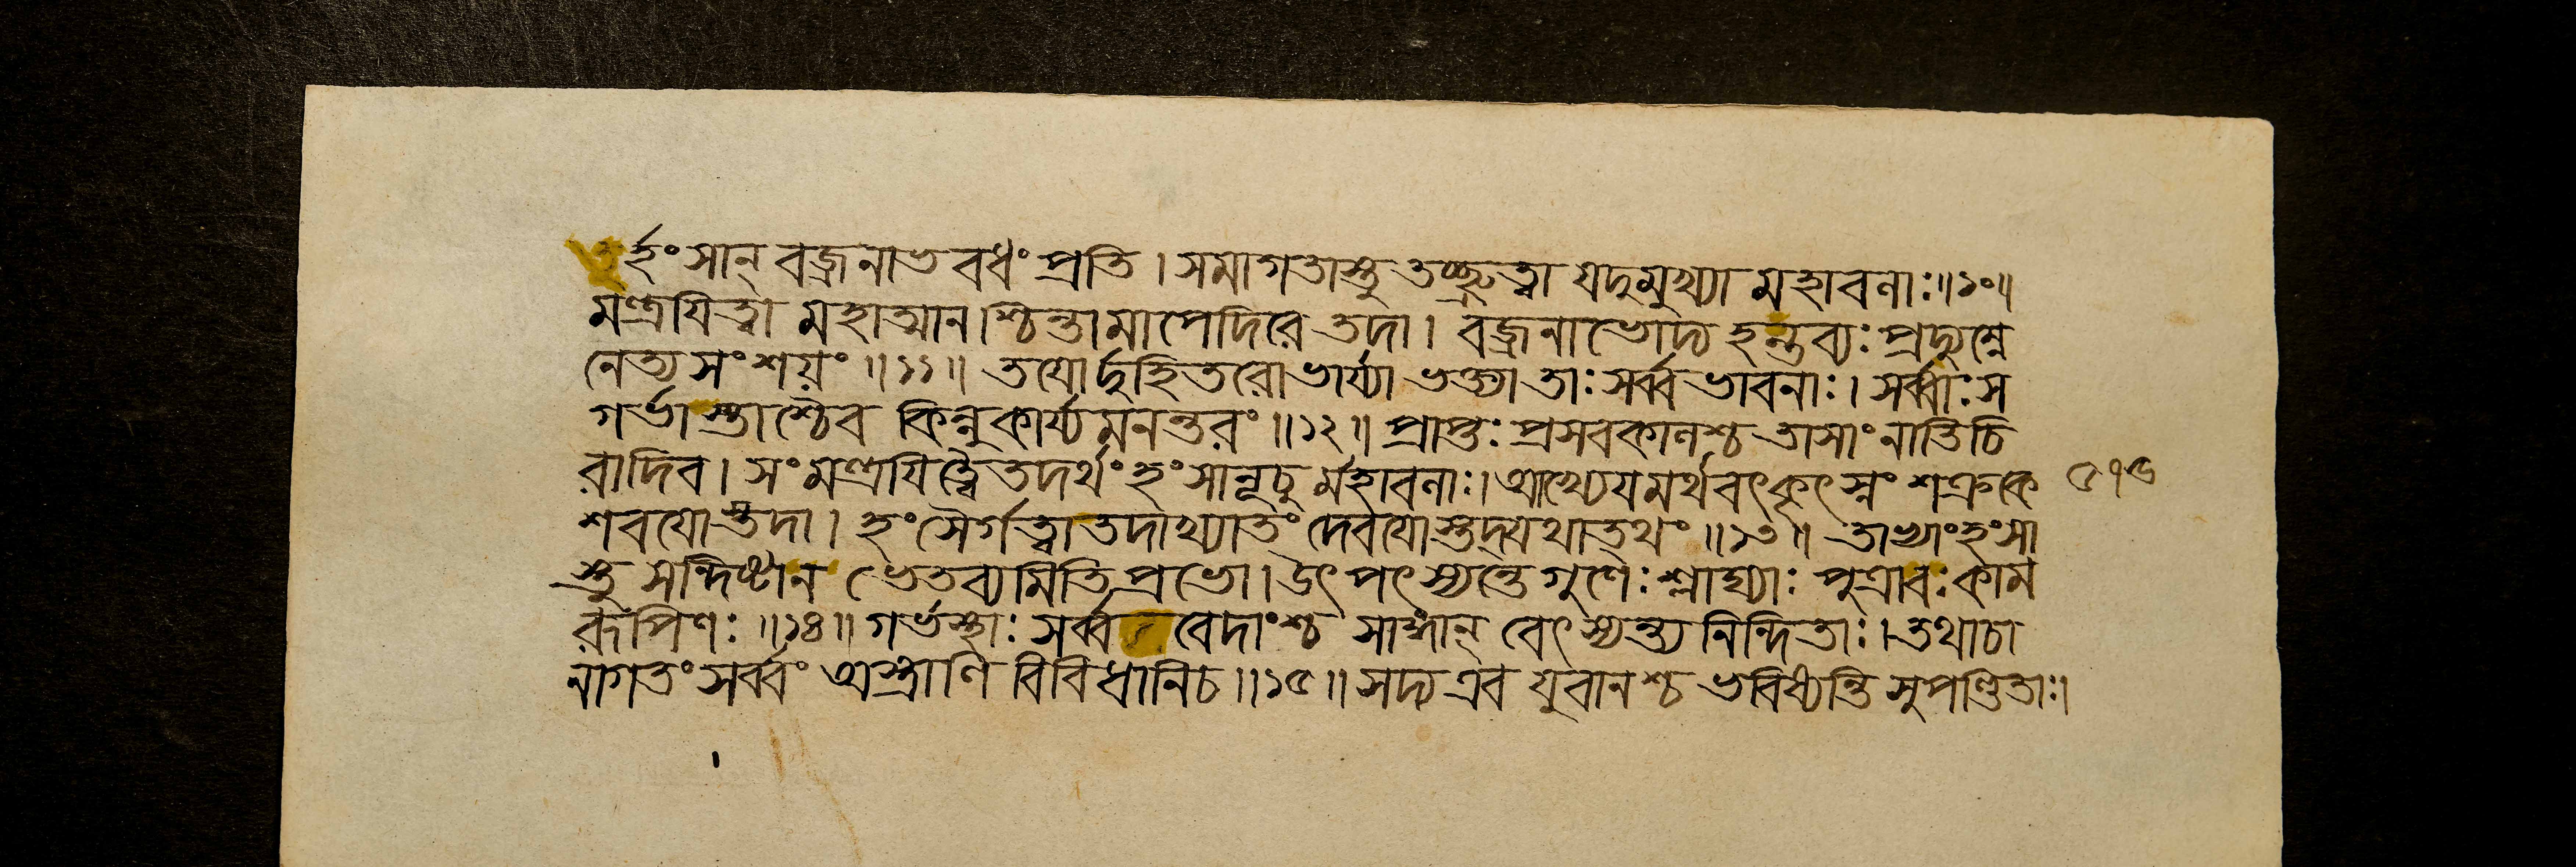 তুর্হংসান্ বজ্রনাভ বধং প্রতি। সমাগতাস্তু তচ্ছ্রুত্বা যদুমুখ্যা মহাবলাঃ॥১০॥
মন্ত্রযিত্বা মহাত্মানশ্চিন্তামাপেদিরে তদা। বজ্রনাভোদ্য হন্তব্যঃ প্রদ্যুম্নে
নেত্যসংশয়ং॥১১॥ তযোর্দুহিতরো ভার্য্যা ভক্ত্যা তাঃ সর্ব্বভাবনাঃ। সর্ব্বাঃ স
গর্ভাস্তাশ্চৈব কিন্নুকার্য্যমনন্তরং॥১২॥ প্রাপ্তঃ প্রসবকালশ্চ তাসাং নাতিচি
রাদিব। সংমন্ত্রযিত্বৈতদর্থং হংসানূচুর্মহাবলাঃ। আখ্যেযমর্থবৎকৃৎস্নং শক্রকে
শবযোস্তদা। হংসৈর্গত্বা তদাখ্যাতং দেবযোস্তদ্যথাতথং॥১৩॥ তাভ্যাং হংসা
স্তু সন্দিষ্টান ভেতব্যমিতি প্রভো। উৎপৎস্যন্তে গুণৈঃ শ্লাঘ্যাঃ পুত্রাবঃ কাম
রূপিণঃ॥১৪॥ গর্ভস্থাঃ সর্ব্ব বেদাংশ্চ সাঙ্গান্ বেৎস্যন্ত্যনিন্দিতাঃ। তথাচা
নাগতং সর্ব্বং অস্ত্রাণি বিবিধানিচ॥১৫॥ সদ্য এব যুবানশ্চ ভবিষ্যন্তি সুপণ্ডিতাঃ।